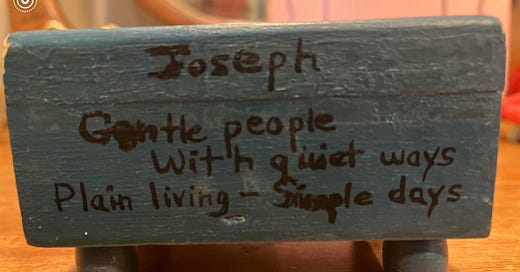 Joseph
Gentle people
With quiet ways
Plain living - Simple days